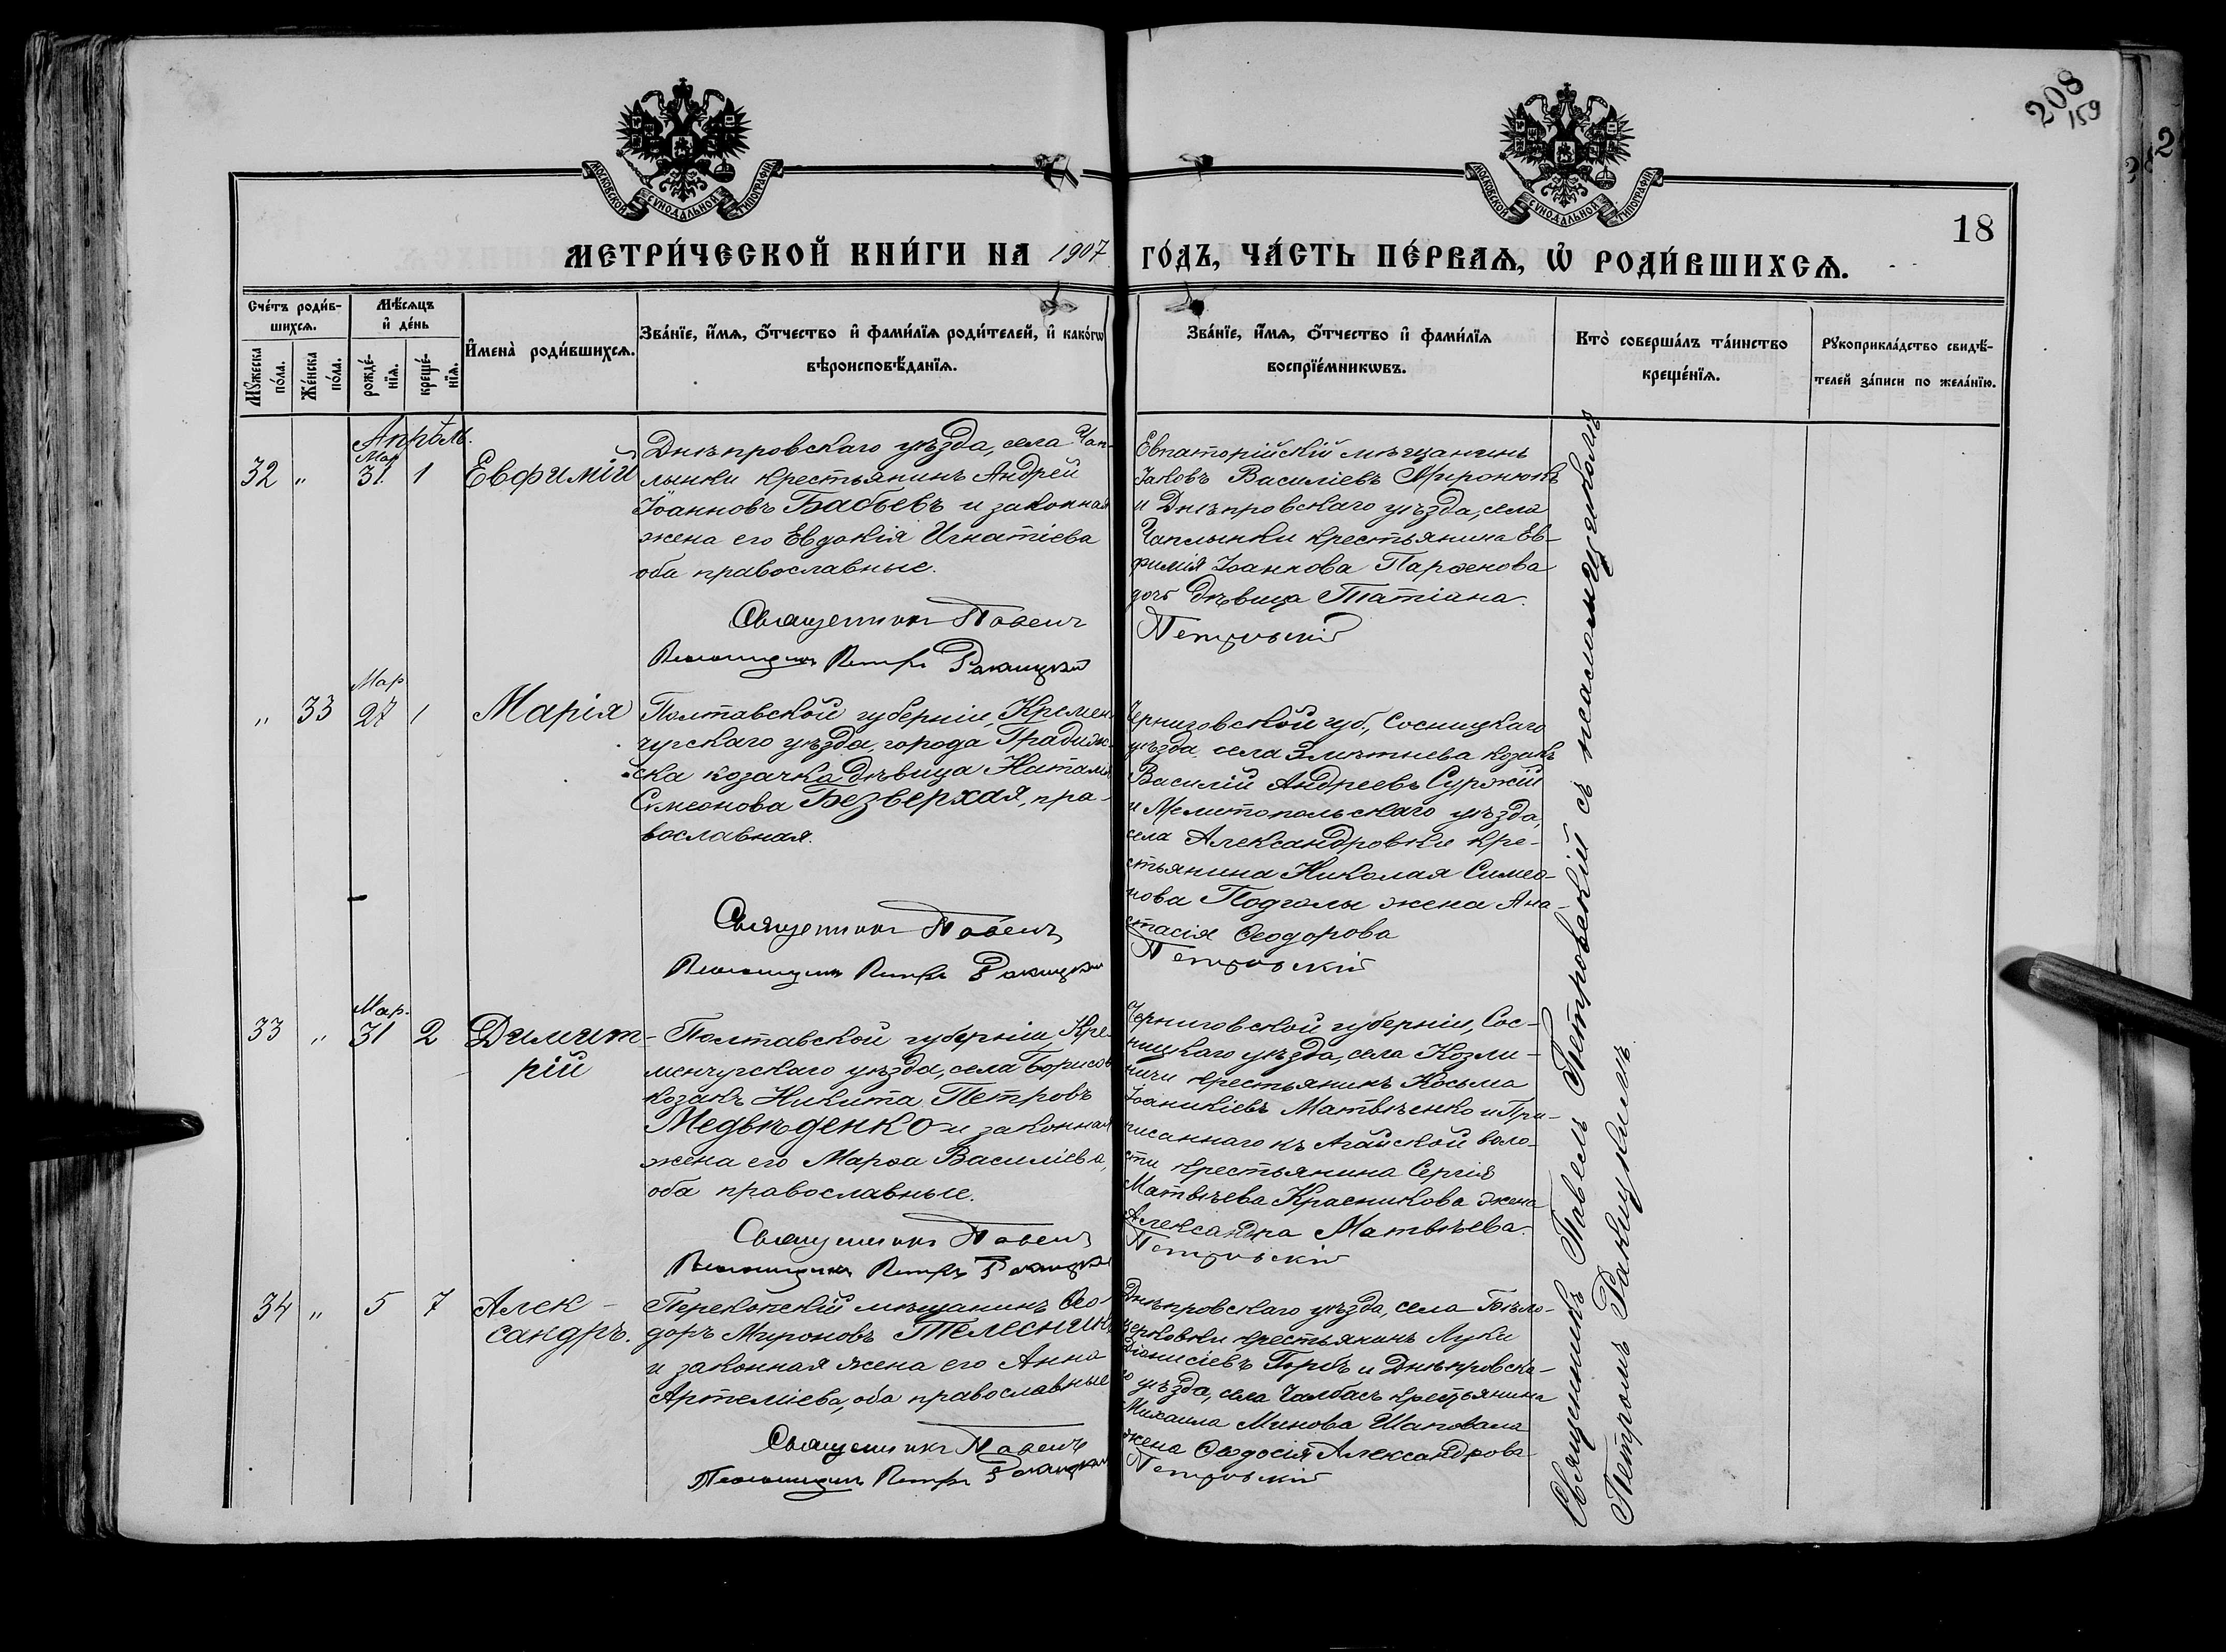 208
159
МОСКОВСКОЙ СѴНОДАЛЬНОЙ ТИПОГРАФІИ
МОСКОВСКОЙ СѴНОДАЛЬНОЙ ТИПОГРАФІИ
18
МЕТРИ́ЧЕСКОЙ КНИ́ГИ НА 1907 ГО́ДЪ, ЧА́СТЬ ПЕ́РВАѦ, Ѡ҆ РОДИ́ВШИХСѦ.
Сче́тъ роди́в-
шихсѧ.
Мѣ́сѧцъ
и҆ де́нь
Мꙋ́жеска по́ла.
Же́нска по́ла.
рожде́-
нїѧ.
креще́-
нїѧ.
И҆мена̀ роди́вшихсѧ.
Зва́нїе, и҆́мѧ, ѻ҆́тчество и҆ фами́лїѧ роди́телей, и҆ како́гѡ
вѣроисповѣ́данїѧ.
Зва́нїе, и҆́мѧ, ѻ҆́тчество и҆ фами́лїѧ
воспрїе́мникѡвъ.
Кто̀ соверша́лъ та́инство
креще́нїѧ.
Рꙋкоприкла́дство свидѣ́-
телей за́писи по жела́нїю.
Апрѣль.
32 " Мар. 31 1 Евфимій
Днѣпровскаго уѣзда, села Чап-
лынки крестьянинъ Андрей
Іоанновъ Бабьевъ и законная
жена его Евдокія Игнатіева
оба православные.
Священникъ Павелъ
Псаломщикъ Петръ Ракицкій
Евпаторійскій мѣщанинъ
Іаковъ Василіевъ Миронюкъ
и Днѣпровскаго уѣзда, села
Чаплынки крестьянина Ев-
фимія Іоаннова Парѳенова
дочь дѣвица Татіана.
Петровскій
" 33 Мар. 27 1 Марія
Полтавской губерніи, Кремен-
чугскаго уѣзда, города Градиж-
ска козачка дѣвица Наталія
Симеонова Безверхая, пра-
вославная.
Священникъ Павелъ
Псаломщикъ Петръ Ракицкій
Черниговской губ., Сосницкаго
уѣзда села козакъ
Василій Андреевъ Суржій
и Мелитопольскаго уѣзда,
села Александровки кре-
стьянина Николая Симео-
нова Подголы жена Ана-
стасія Ѳеодорова
Петровскій
33 " Мар. 31 2 Димит-
рій
Полтавской губерніи, Кре-
менчугскаго уѣзда, села Борисов
козакъ Никита Петровъ
Медвѣденко и законная
жена его Марѳа Василіева,
оба православные.
Священникъ Павелъ
Псаломщикъ Петръ Ракицкій
Черниговской губерніи, Сос-
ницкаго уѣзда, села Козли-
ничи крестьянинъ Косьма
Іоаникіевъ Матвѣенко и При-
писаннаго къ Агайской воло-
сти крестьянина Сергія
Матвѣева Красникова жена
Александра Матвѣева.
Петровскій
34 " 5 7 Алек-
сандръ.
Перекопскій мѣщанинъ Ѳео-
доръ Мироновъ Телеснинъ
и законная жена его Анна
Артеміева, оба православные
Священникъ Павелъ
Псаломщикъ Петръ Ракицкій
Днѣпровскаго уѣзда, села Бѣло-
церковки крестьянинъ Луки
Діонисіевъ Горбъ и Днѣпровска-
го уѣзда, села Чалбасъ крестьянина
Михаила Минова Шаповала
жена Ѳеодосія Александрова
Петровскій
Священникъ Павелъ Петровскій съ псаломщикомъ
Петромъ Ракицкимъ.